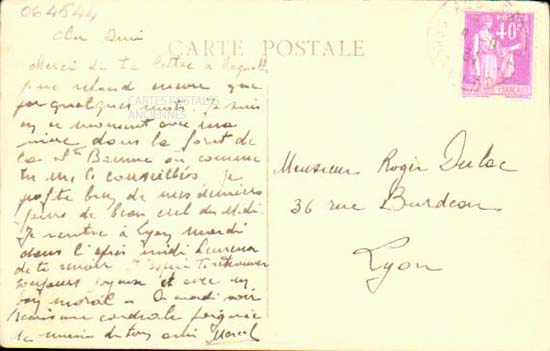 064544
Cher Ami
CARTE POSTALE
POSTES
40c
FRANÇAISE
Merci de ta lettre à laquelle
je ne réponds encore que
par quelques mots. Je suis
en ce moment avec ma
mère dans la forêt de
la Ste Baume où comme
tu me le conseilles je
profite bien de mes derniers
jours de beau ciel du Midi.
Je rentre à Lyon mardi
dans l'après midi heureux
de te revoir. J'espère te retrouver
toujours joyeux et avec un
bon moral. A mardi soir
cordiale poignée
de main de ton ami Marcel
CARTES POSTALES
ANCIENNES
Monsieur Roger Dulac
36 rue Burdeau
Lyon